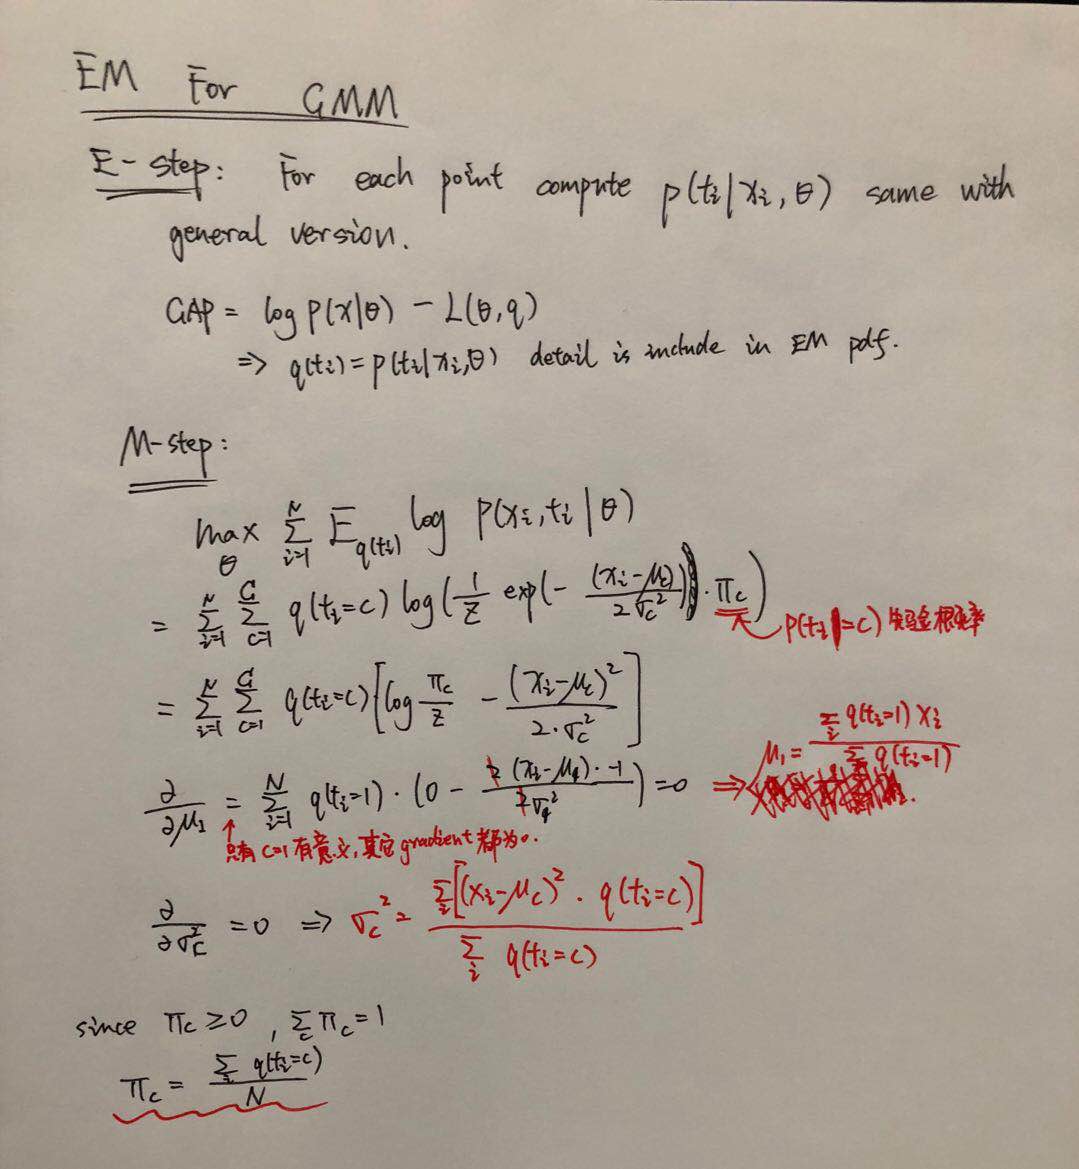 EM For GMM
E-step: For each point compute p(ti|xi, θ) same with
general version.
GAP = log P(x|θ) - L(θ,q)
⇒ q(ti)=p(ti|xi,θ) detail is include in EM pdf.
M-step:
max_θ Σ_{i=1}^{N} E_{q(ti)} log P(xi,ti|θ)
= Σ_{i=1}^{N} Σ_{c=1}^{C} q(ti=c) log(1/Z exp(- (xi-μc)/2σc²)·πc)
P(ti=c) 先验概率
= Σ_{i=1}^{N} Σ_{c=1}^{C} q(ti=c)[log πc/Z - (xi-μc)²/2·σc²]
∂/∂μ1 = Σ_{i=1}^{N} q(ti=1)·(0 - 2(xi-μ1)·-1/2σ1²)=0 ⇒ μ1 = Σ_i q(ti=1)xi / Σ_i q(ti=1)
↑只有c=1有意义,其它gradient都为0.
∂/∂σc² = 0 ⇒ σc² = Σ_i[(xi-μc)²·q(ti=c)] / Σ_i q(ti=c)
since πc≥0, Σ_c πc=1
πc = Σ_i q(ti=c) / N